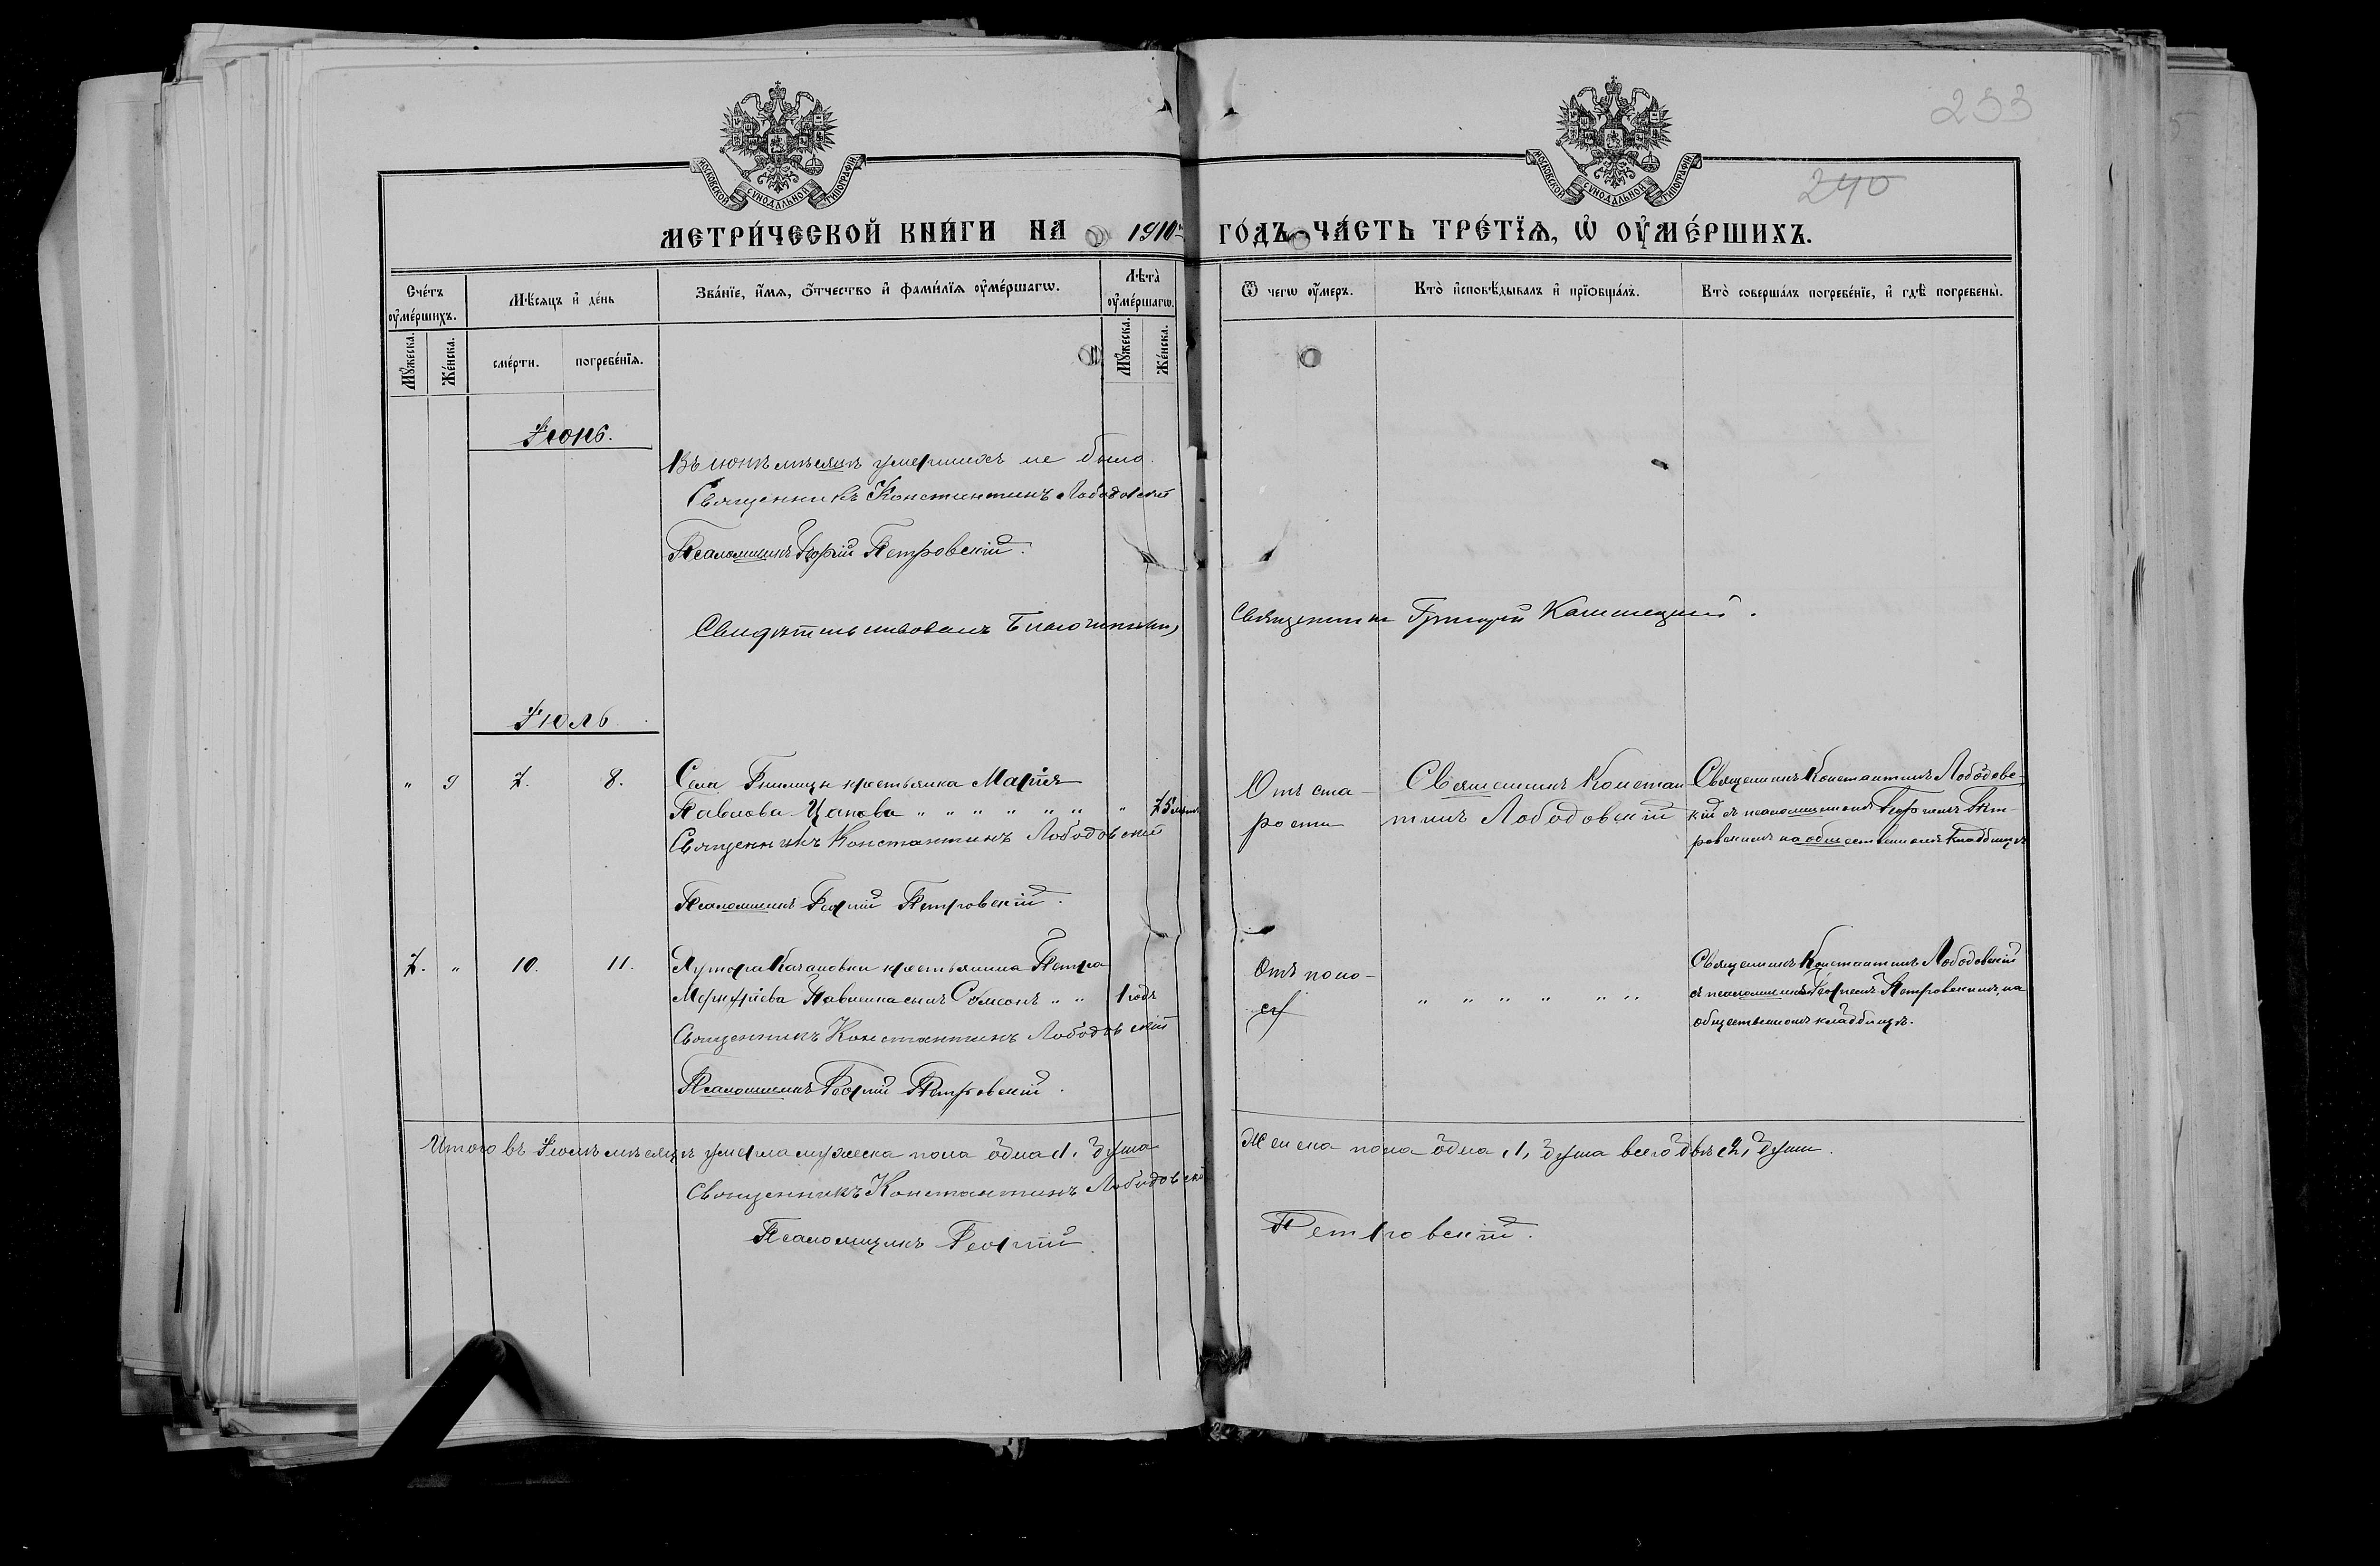 233
240
МОСКОВСКОЙ СУНОДАЛЬНОЙ ТИПОГРАФІИ
МОСКОВСКОЙ СУНОДАЛЬНОЙ ТИПОГРАФІИ
МЕТРИ́ЧЕСКОЙ КНИ́ГИ НА 1910 ГО́ДЪ ЧА́СТЬ ТРЕ́ТЇѦ, Ѡ҆ ОУ҆МЕ́РШИХЪ.
Сче́тъ оу҆ме́ршихъ.
Мѣ́сяцъ и҆ де́нь
Зва́нїе, и҆́мѧ, ѻ҆́тчество и҆ фами́лїѧ оу҆ме́ршагѡ.
Лѣта̀ оу҆ме́ршагѡ.
Ѿ чегѡ̀ оу҆́меръ.
Кто̀ и҆сповѣ́дывалъ и҆ прїѡбща́лъ.
Кто̀ соверша́лъ погребе́нїе, и҆ гдѣ̀ погребены̀.
Мꙋ́жеска.
Же́нска.
сме́рти.
погребе́нїѧ.
Мꙋ́жеска.
Же́нска.
Іюнь.
Въ іюнѣ мѣсяцѣ умершихъ не было.
Священникъ Константинъ Лободовскій
Псаломщикъ Георгій Петровскій.
Свидѣтельствовалъ Благочинный, Священникъ Григорій
Іюль.
" 9 7. 8. Села крестьянка Марія
Павлова Цапова " " " " " " " 75 лѣтъ
Священникъ Константинъ Лободовскій
Псаломщикъ Георгій Петровскій.
Отъ ста-
рости
Священникъ Констан
тинъ Лободовскій
Священникъ Константинъ Лободовс-
кій съ псаломщикомъ Георгіемъ Пет-
ровскимъ на общественномъ кладбищѣ
7. " 10. 11. Хутора Качановки крестьянина Петра
Меркуріева Павленка сынъ Самсонъ " " 1 годъ
Священникъ Константинъ Лободовскій
Псаломщикъ Георгій Петровскій.
Отъ поно-
са
" " " " " "
Священникъ Константинъ Лободовскій
съ псаломщикомъ Георгіемъ Петровскимъ, на
общественномъ кладбищѣ.
Итого въ Іюлѣ мѣсяцѣ умерла мужеска пола одна (1), душа Женска пола одна (1), душа всего двѣ (2), души.
Священникъ Константинъ Лободовскій
Псаломщикъ Георгій Петровскій.